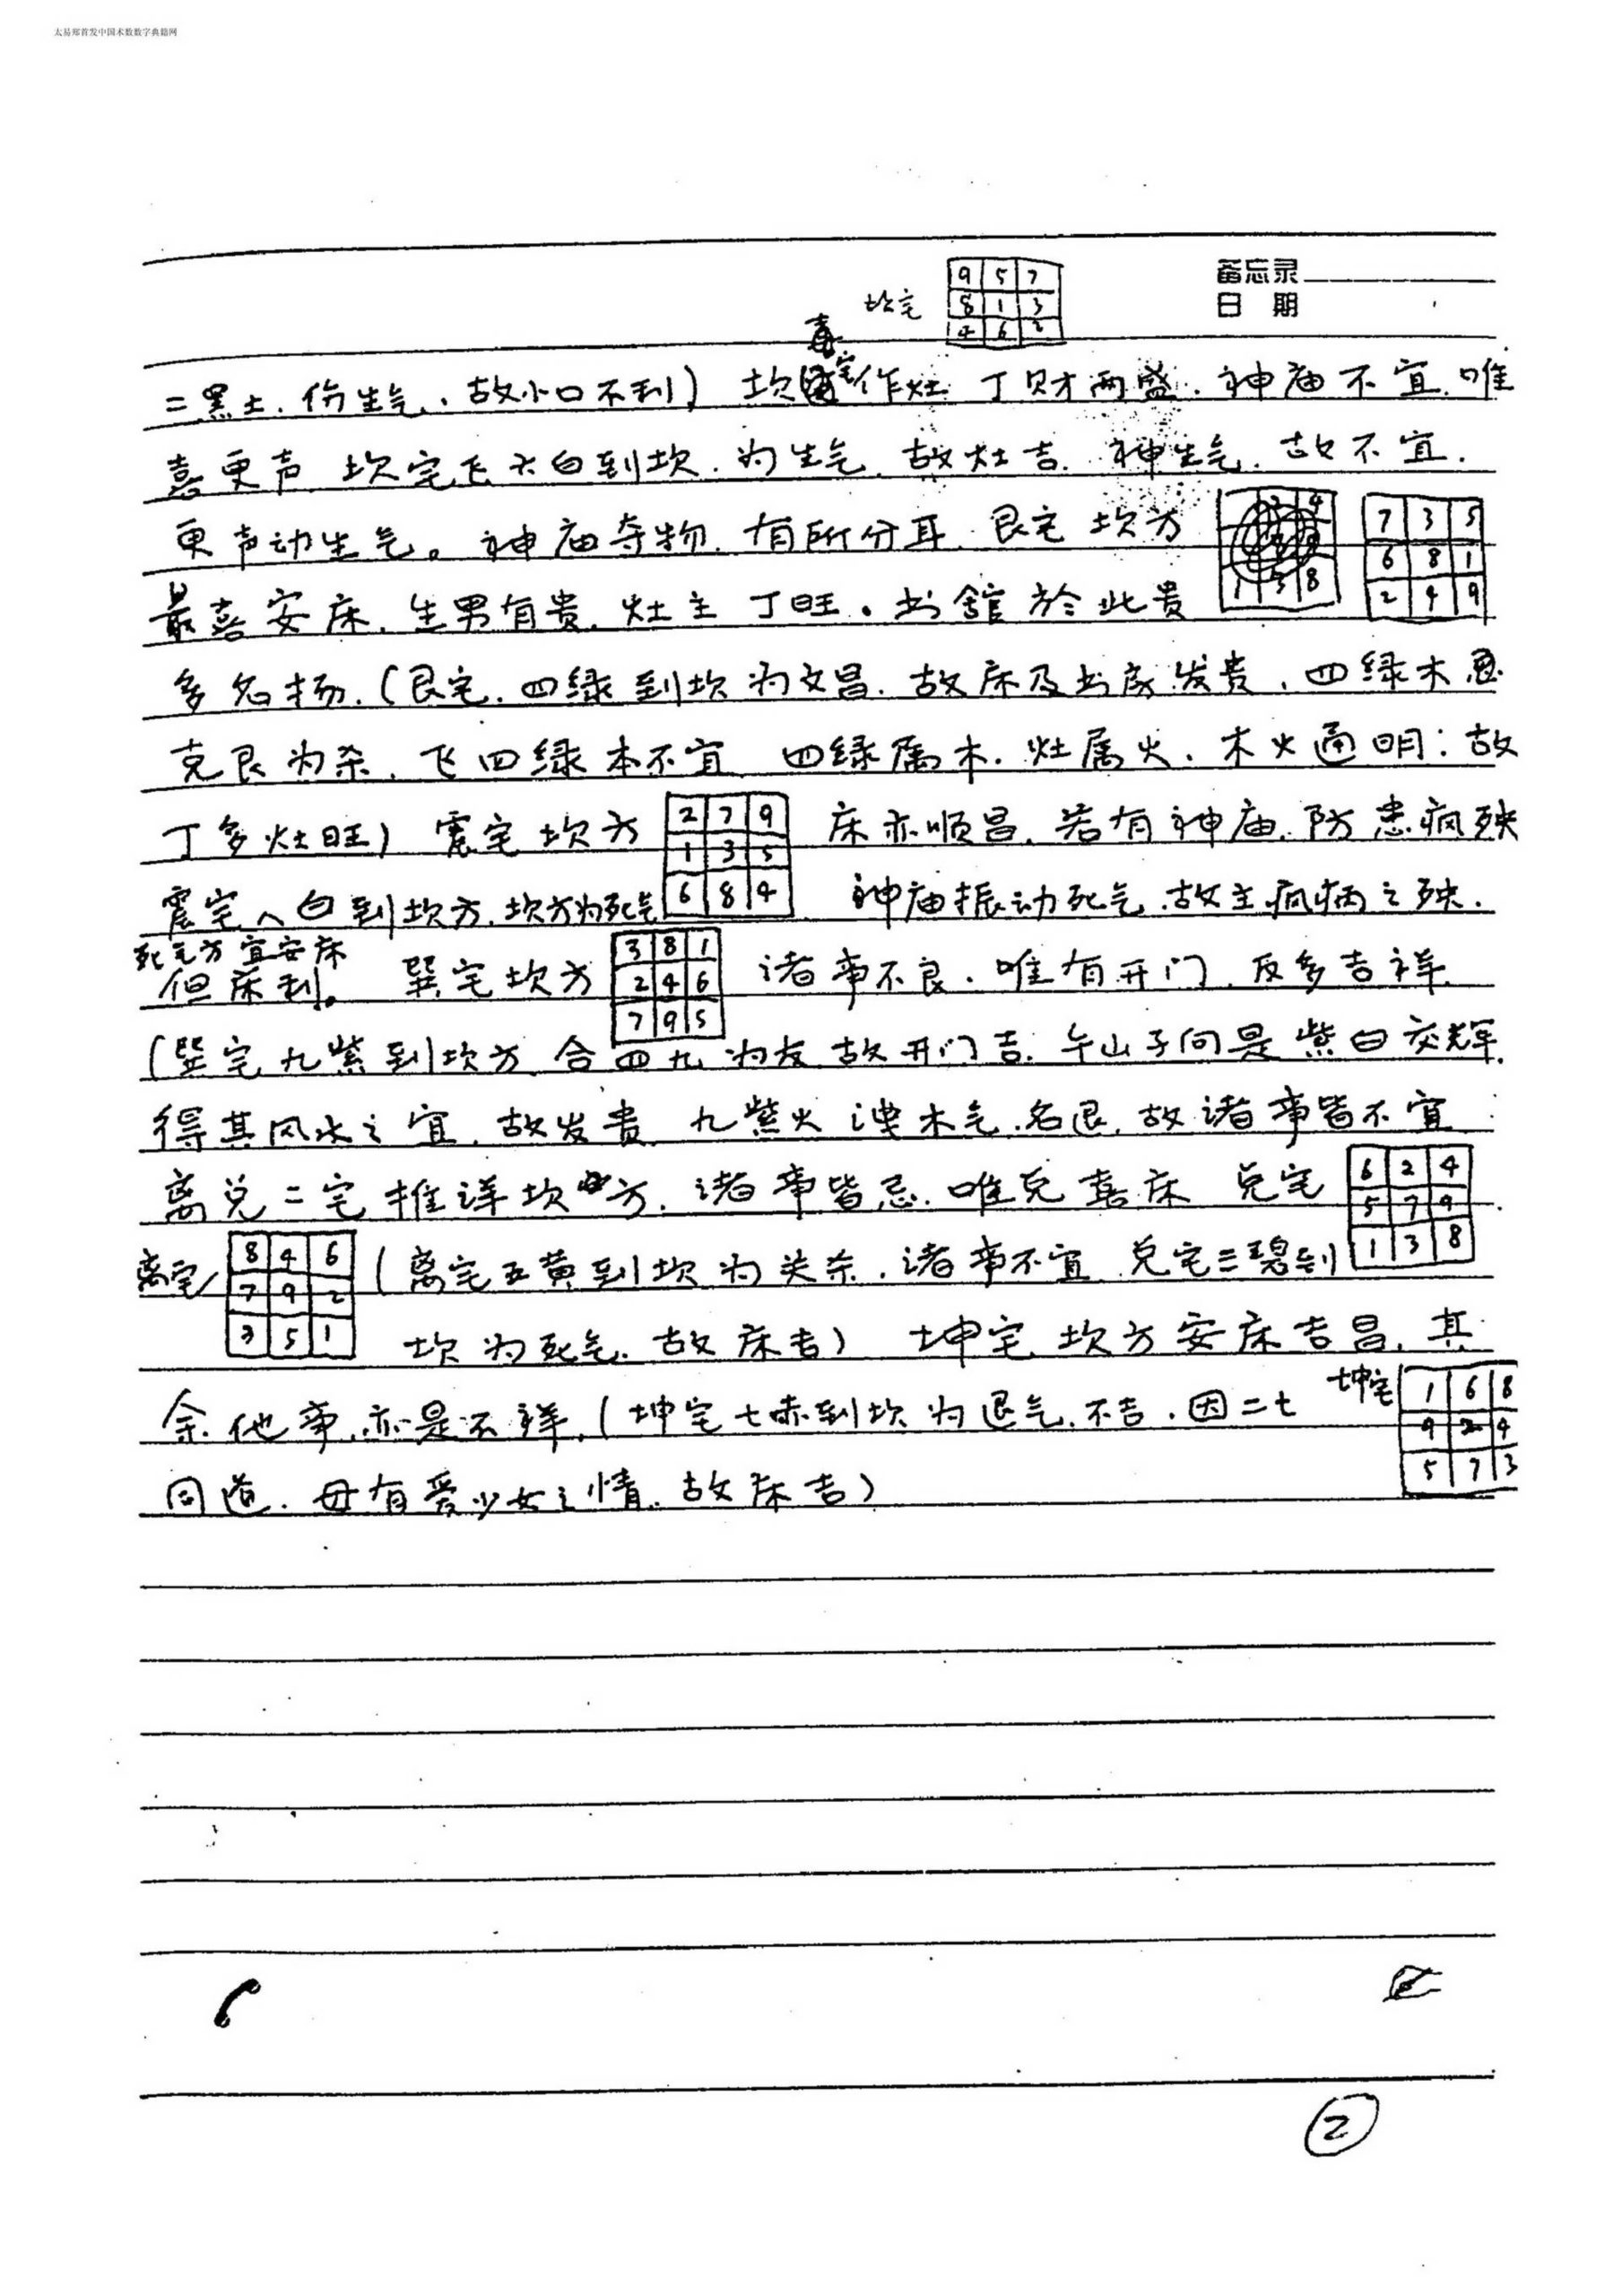 太易郑首发中国术数数字典籍网
备忘录
日 期
坎宅
9 5 7
8 1 3
4 6 2
喜
二黑土.伤生气.故小口不利) 坎宅作灶 丁财两盛.神庙不宜.唯
喜更声 坎宅飞六白到坎.为生气.故灶吉.神生气.故不宜.
更声动生气。神庙夺物.有所分耳.艮宅 坎方
7 3 5
6 8 1
2 4 9
最喜安床.生男有贵.灶主丁旺.书舘於此贵
多名扬.(艮宅.四绿到坎为文昌.故床及书房发贵.四绿木
克艮为杀.飞四绿本不宜 四绿属木.灶属火.木火通明:故
丁多灶旺) 震宅坎方
2 7 9
1 3 5
6 8 4
床亦顺昌.若有神庙.防患疯殃
震宅八白到坎方.坎方为死气 神庙振动死气.故主疯病之殃.
死气方宜安床
但床利。 巽宅坎方
3 8 1
2 4 6
7 9 5
诸事不良.唯有开门.反多吉祥.
(巽宅九紫到坎方.合四九为友.故开门吉.午山子向是紫白交辉.
得其风水之宜.故发贵.九紫火洩木气.名退.故诸事皆不宜
离兑二宅推详坎方.诸事皆忌.唯兑喜床 兑宅
6 2 4
5 7 9
1 3 8
离宅
8 4 6
7 9 2
3 5 1
(离宅五黄到坎为关杀.诸事不宜.兑宅三碧到
坎为死气.故床吉) 坤宅坎方安床吉昌.其
余他事.亦是不祥.(坤宅七赤到坎为退气.不吉.因二七
坤宅
1 6 8
9 2 4
5 7 3
同道.母有爱少女之情.故床吉)
2